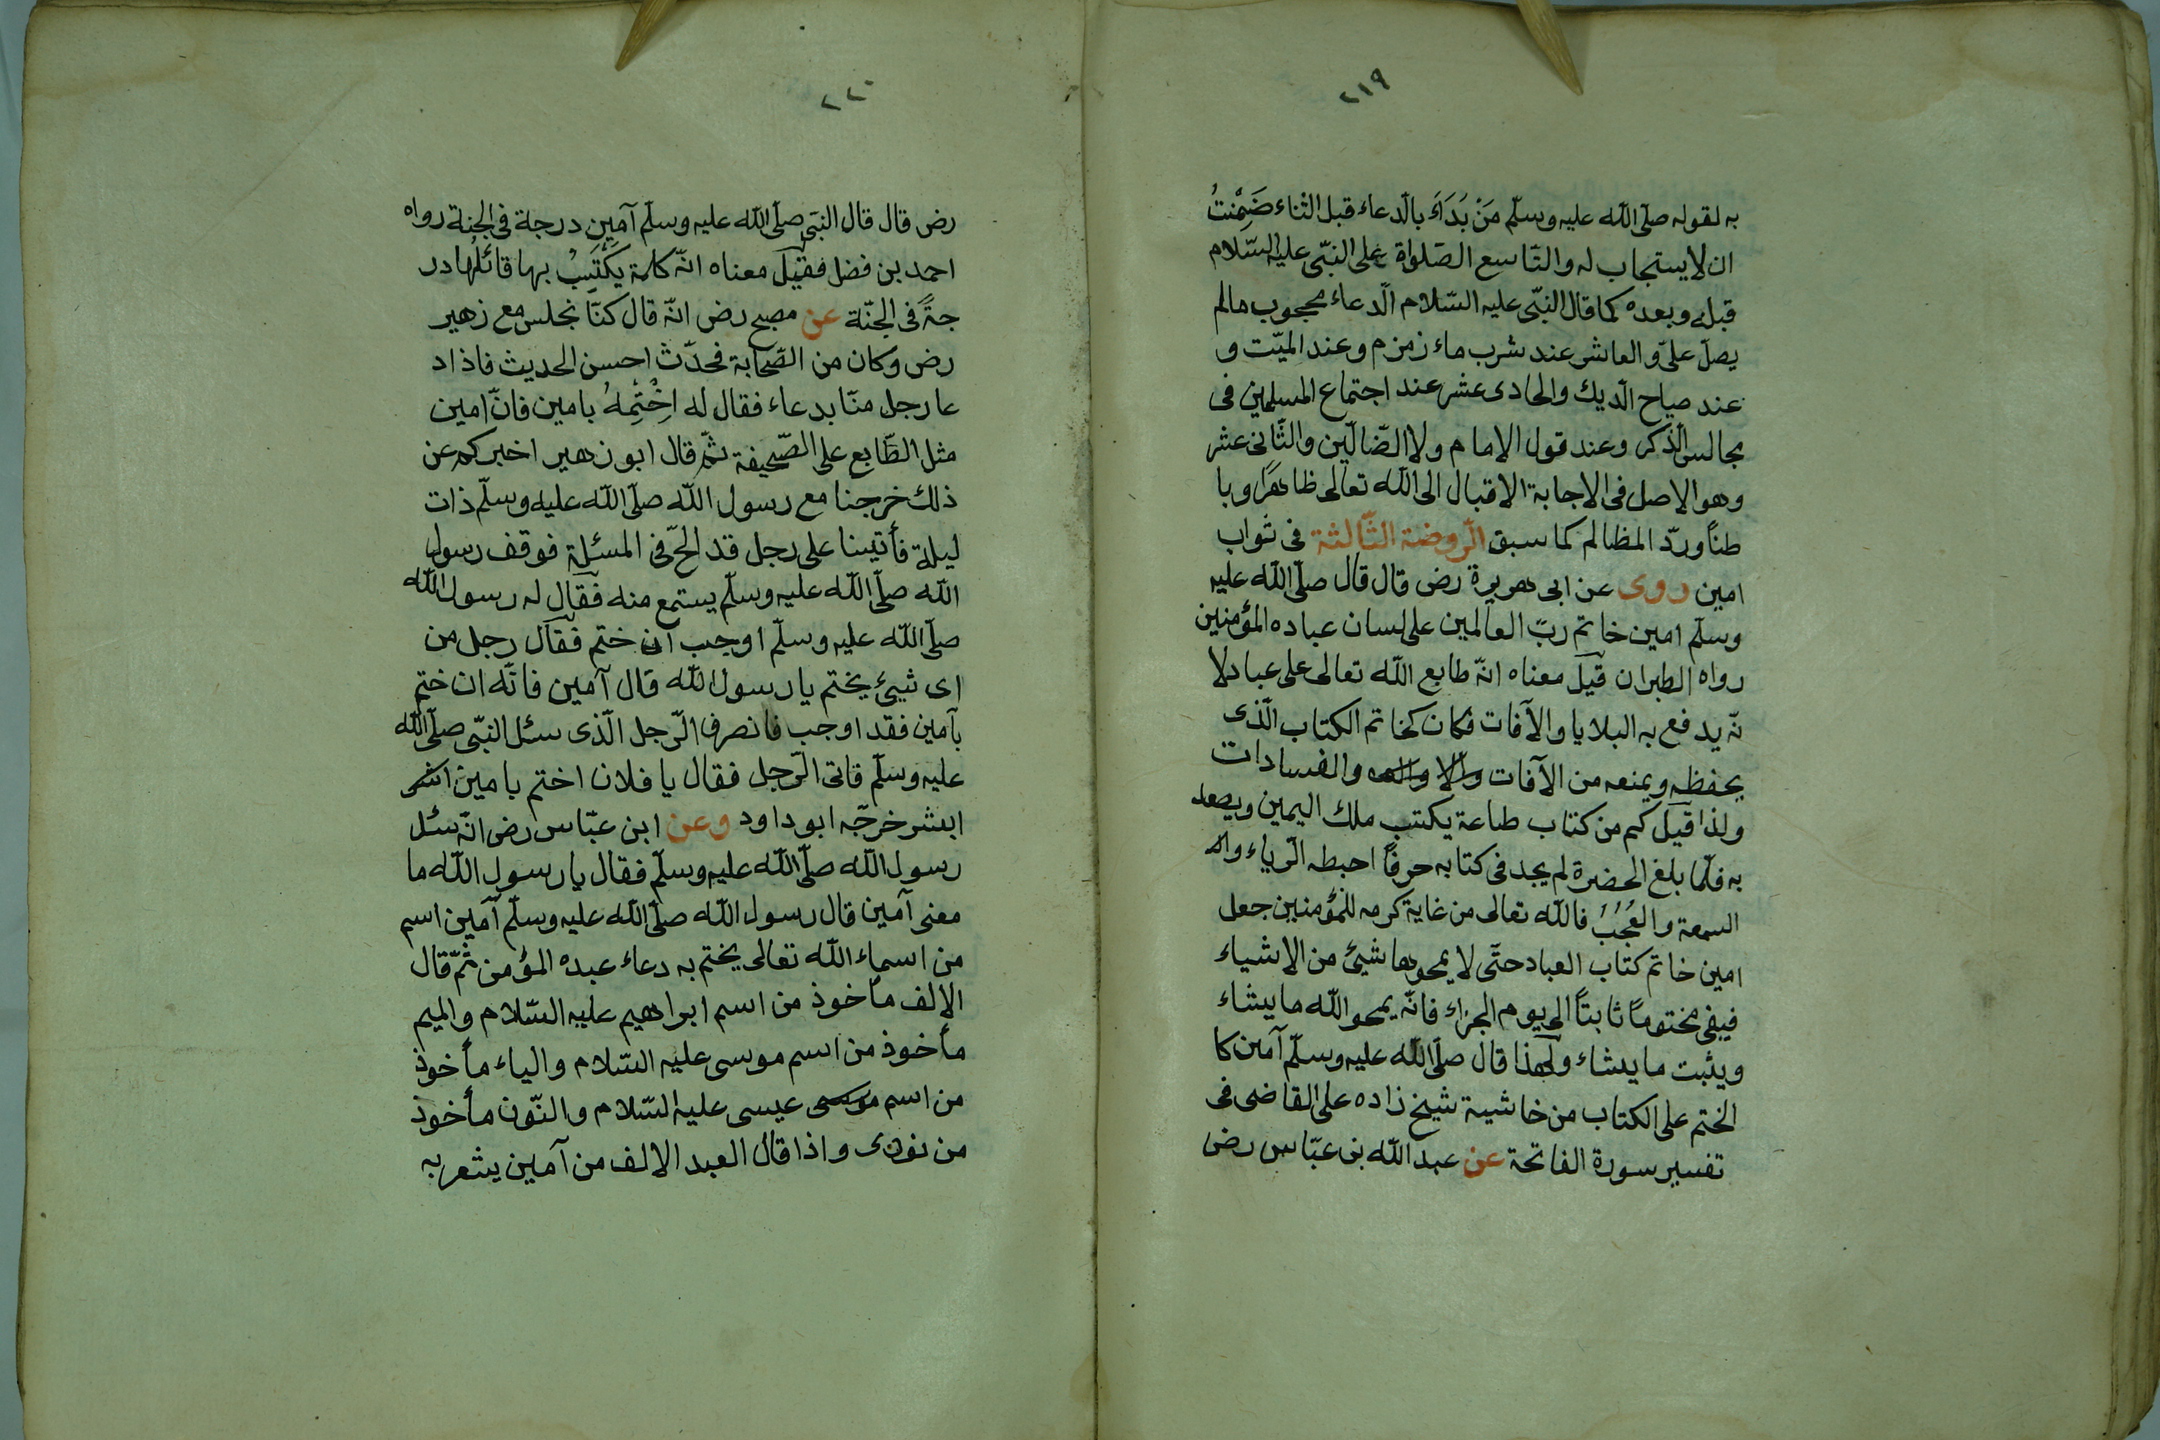 ٢١٩
به لقوله صلّى الله عليه وسلّم مَنْ بُدَاءَ بالّدعاء قبل الثناء ضَمِنْتُ
ان لا يستجاب له والتّاسع الصّلواة على النّبّى عليه السّلام
قبله وبعده كما قال النبّى عليه السّلام الّدعاء محجوب مالم
يصلّ علىّ والعاشر عند شرب ماء زمزم وعند الميّت و
عند صياح الّديك والحادى عشر عند اجتماع المسلمين فى
مجالس الّذكر وعند قول الامام ولا الضّالّين والثّانى عشر
وهو الاصل فى الاجابة الاقبال الى الله تعالى ظاهرًا وبا
طنًا وردّ المظالم كما سبق الّروضة الثّالثة فى ثواب
امين روى عن ابى هريرة رض قال قال صلّى الله عليه
وسلّم امين خاتم ربّ العالمين على لسان عباده المؤمنين
رواه الطبران قيل معناه انّه طابع الله تعالى على عباد لا
نّه يدفع به البلايا والآفات فكان كخاتم الكتاب الّذى
يحفظه ويمنعه من الآفات والفسادات
ولذا قيل كم من كتاب طاعة يكتب ملك اليمين ويصعد
به فلمّا بلغ الحضرة لم يجد فى كتابه حرفًا احبطه الّرياء وال‍
السمعة والعُجُبُ فالله تعالى من غاية كرمه للمؤمنين جعل
امين خاتم كتاب العباد حتّى لا يمحوها شيئ من الاشياء
فيبقى مختومًا ثابتًا الى يوم الجزاء فانّه يمحو الله ما يشاء
ويثبت ما يشاء ولهذا قال صلّى الله عليه وسلّم آمين كا
الختم على الكتاب من خاشية شيخ زاده على القاضى فى
تفسير سورة الفاتحة عن عبد الله بن عبّاس رض
٢٢٠
رض قال قال النبّى صلّى الله عليه وسلّم آمين درجة فى الجنة رواه
احمد بن فضل فقيل معناه انّه كلمة يَكْتَسِبُ بها قائلُها در
جةً فى الجنّة عن مصبح رض انّه قال كنّا نجلس مع زهير
رض وكان من الصّحابة فحدّث احسن الحديث فاذا د
عا رجل منّا بدعاء فقال له اخْتِمْهُ بامين فانّ امين
مثل الطّابع على الصّحيفة ثمّ قال ابو زهير اخبركم عن
ذلك خرجنا مع رسول الله صلّى الله عليه وسلّم ذات
ليلة فأتينا على رجل قد الحّ فى المسئلة فوقف رسول
الله صلّى الله عليه وسلّم يستمع منه فقال له رسول الله
صلّى الله عليه وسلّم اوجب ان ختم فقال رجل من
اى شيئ يختم يا رسول الله قال آمين فانّه ان ختم
بآمين فقد اوجب فانصرف الّرجل الّذى سئل النبّى صلّى الله
عليه وسلّم فاتى الّرجل فقال يا فلان اختم بامين
ابشر خرجّه ابو داود وعن ابن عبّاس رض انّه سئل
رسول الله صلّى الله عليه وسلّم فقال يا رسول الله ما
معنى آمين قال رسول الله صلّى الله عليه وسلّم آمين اسم
من اسماء الله تعالى يختم به دعاء عبده المؤمن ثمّ قال
الالف مأخوذ من اسم ابراهيم عليه السّلام والميم
مأخوذ من اسم موسى عليه السّلام والياء مأخوذ
من اسم موسى عيسى عليه السّلام والنّون مأخوذ
من نورى واذا قال العبد الالف من آمين يشعر به